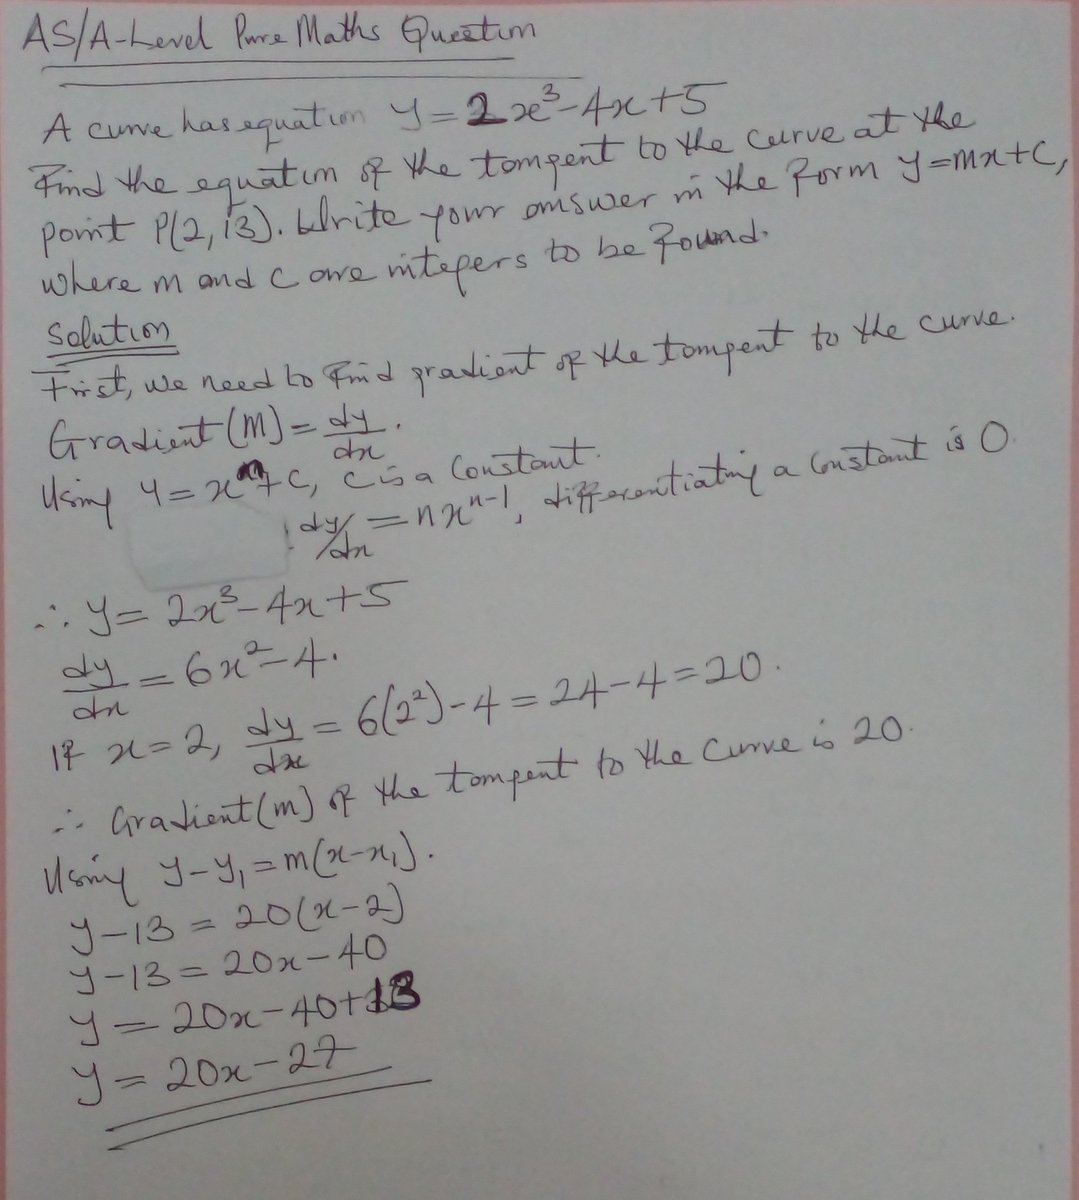 AS/A-Level Pure Maths Question
A curve has equation y = 2x³-4x+5
Find the equation of the tangent to the curve at the
point P(2,13). Write your answer in the form y=mx+c,
where m and c are integers to be found.
Solution
First, we need to find gradient of the tangent to the curve.
Gradient (M) = dy/dx.
Using y = xⁿ+c, c is a constant.
dy/dx = nxⁿ⁻¹, differentiating a constant is 0.
∴ y = 2x³-4x+5
dy/dx = 6x²-4.
If x=2, dy/dx = 6(2²)-4 = 24-4 = 20.
∴ Gradient (m) of the tangent to the curve is 20.
Using y-y₁ = m(x-x₁).
y-13 = 20(x-2)
y-13 = 20x-40
y = 20x-40+13
y = 20x-27